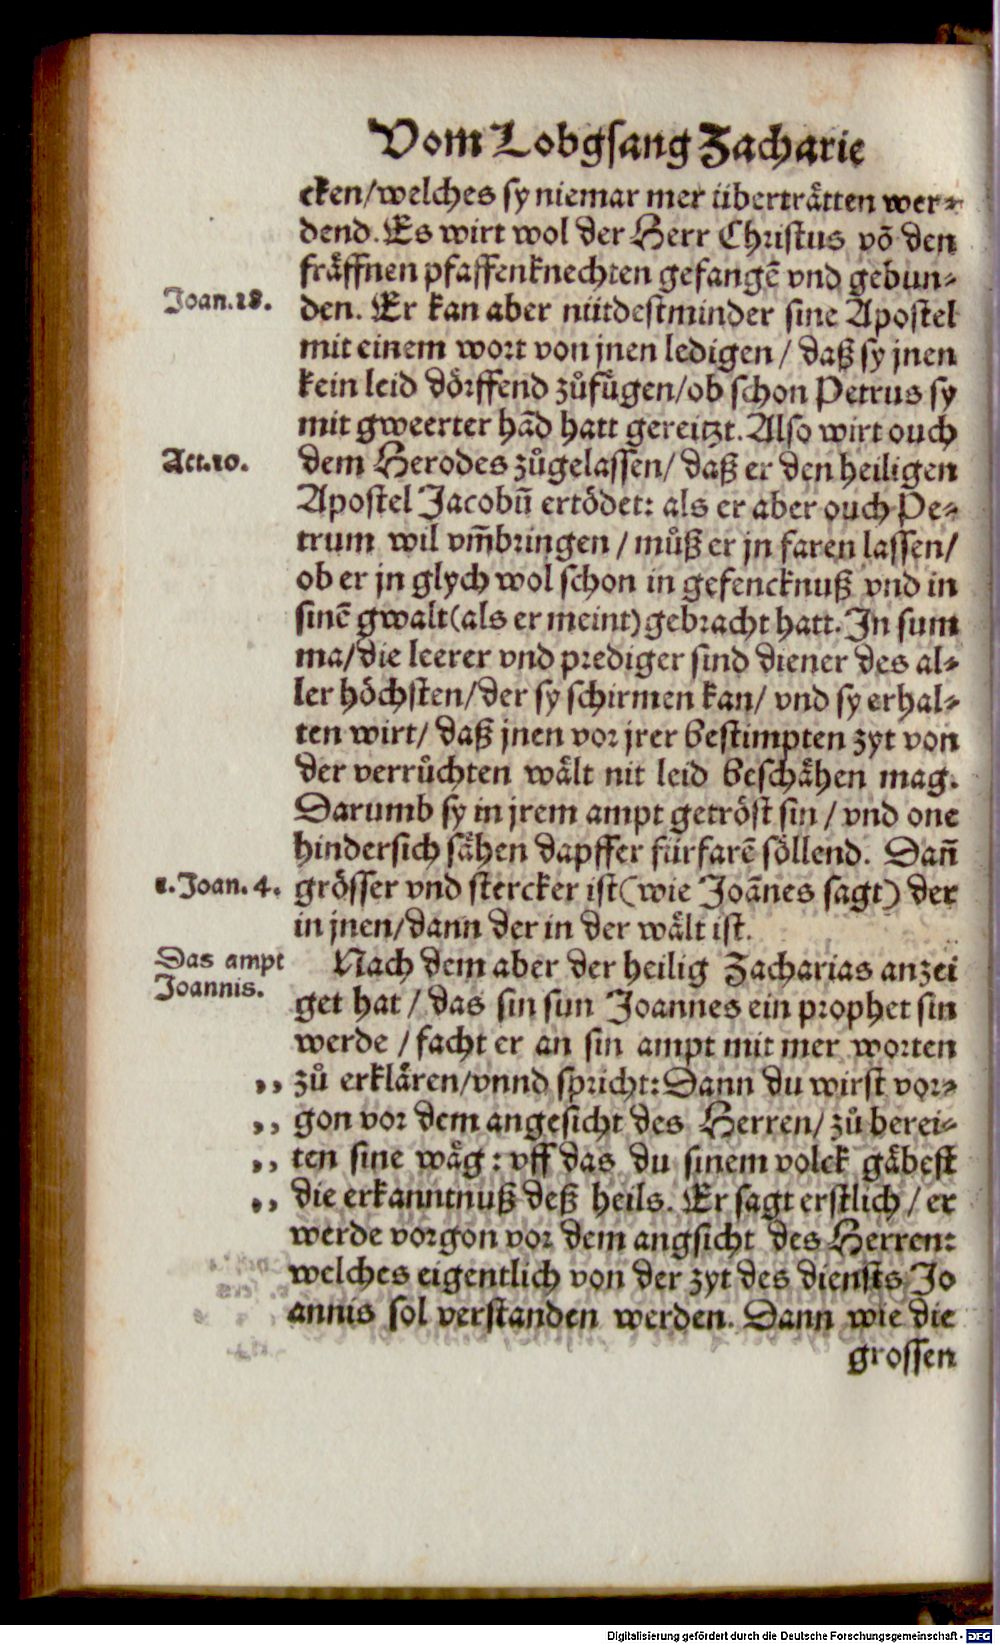 Vom Lobgsang Zacharie
cken/welches sy niemar mer übertrâtten wer-
dend. Es wirt wol der Herr Christus võ den
frâffnen pfaffenknechten gefangẽ vnd gebun-
Joan.18.
den. Er kan aber nütdestminder sine Apostel
mit einem wort von jnen ledigen / daß sy jnen
kein leid dörffend zůfügen/ob schon Petrus sy
mit gweerter hãd hatt gereitzt. Also wirt ouch
Act.10.
dem Herodes zůgelassen/ daß er den heiligen
Apostel Jacobũ ertödet: als er aber ouch Pe-
trum wil vm̃bringen / můß er jn faren lassen/
ob er jn glych wol schon in gefencknuß vnd in
sinẽ gwalt(als er meint) gebracht hatt. In sum
ma/die leerer vnd prediger sind diener des al-
ler höchsten/der sy schirmen kan/ vnd sy erhal-
ten wirt/ daß jnen vor jrer bestimpten zyt von
der verrůchten wält nit leid beschähen mag.
Darumb sy in jrem ampt getröst sin / vnd one
hindersich sähen dapffer fürfarẽ söllend. Dañ
1. Joan. 4.
grösser vnd stercker ist (wie Joãnes sagt) der
in jnen/dann der in der wält ist.
Das ampt
Joannis.
Nach dem aber der heilig Zacharias anzei
get hat / das sin sun Joannes ein prophet sin
werde / facht er an sin ampt mit mer worten
,, zů erklären/vnnd spricht: Dann du wirst vor-
,, gon vor dem angesicht des Herren/ zů berei-
,, ten sine wäg : vff das du sinem volck gäbest
,, die erkanntnuß deß heils. Er sagt erstlich / er
werde vorgon vor dem angsicht des Herren:
welches eigentlich von der zyt des diensts Jo
annis sol verstanden werden. Dann wie die
grossen
Digitalisierung gefördert durch die Deutsche Forschungsgemeinschaft - DFG